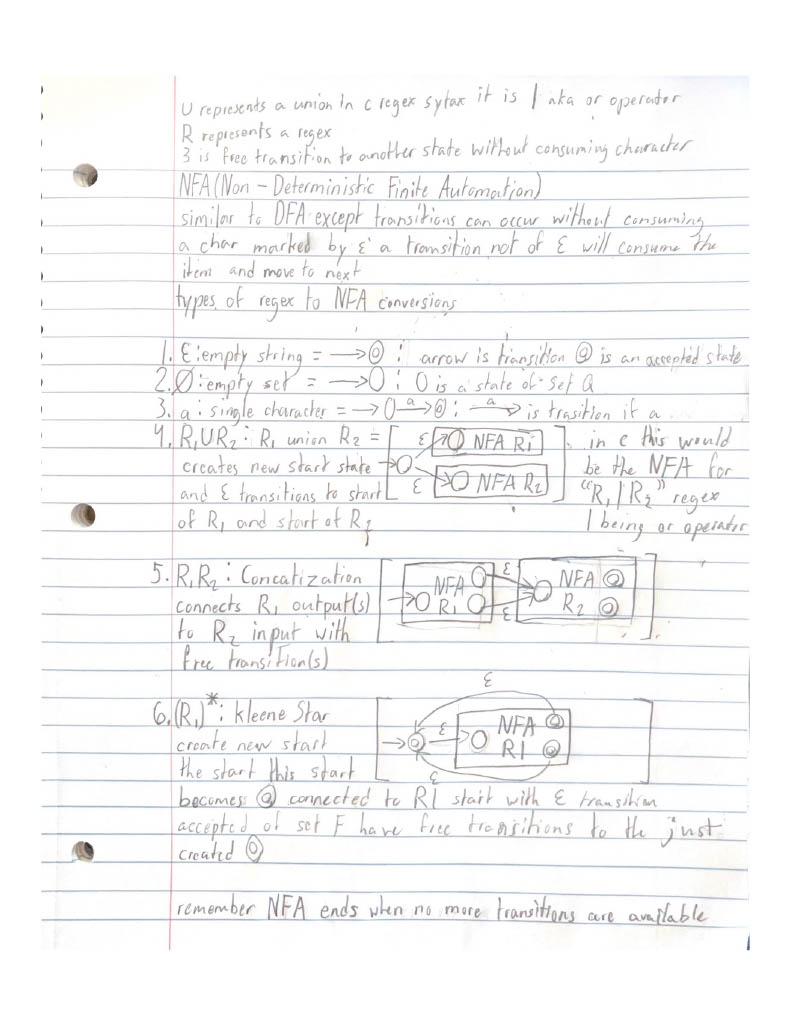 U represents a union in c regex sytax it is | aka or operator
R represents a regex
3 is free transition to another state without consuming character
NFA (Non-Deterministic Finite Automation)
similar to DFA except transitions can occur without consuming
a char marked by ε a transition not of ε will consume the
item and move to next
types of regex to NFA conversions
1. ε: empty string = →◎ : arrow is transition ◎ is an accepted state
2. Ø: empty set = →O : O is a state of set Q
3. a: single character = →O a→◎ : a→ is trasition if a
4. R1UR2: R1 union R2 = [ ε NFA R1 ] in c this would
creates new start state be the NFA for
and ε transitions to start ε NFA R2 "R1|R2" regex
of R1 and start of R2 | being or operator
5. R1R2: Concatization ε
connects R1 output(s) NFA R1 NFA R2
to R2 input with ε
free transition(s)
ε
6. (R1)*: kleene Star
create new start ε NFA R1
the start this start 3
becomes ◎ connected to R1 start with ε transition
accepted of set F have free transitions to the just
created ◎
remember NFA ends when no more transitions are available